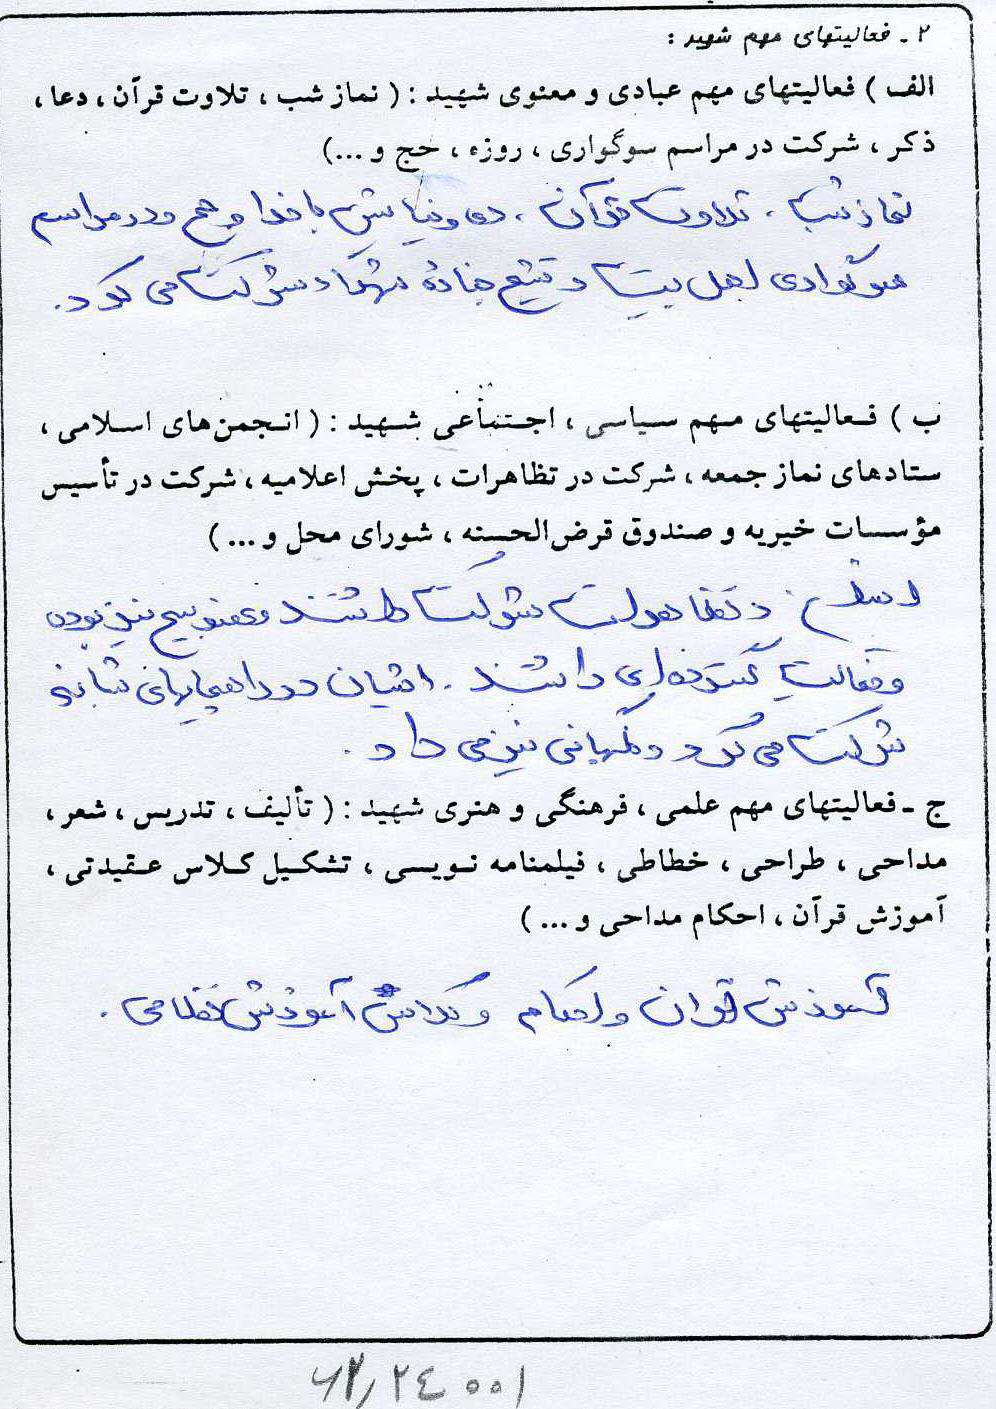 ۲ ـ فعالیتهای مهم شهید :
الف ) فعالیتهای مهم عبادی و معنوی شهید : ( نماز شب ، تلاوت قرآن ، دعا ،
ذکر ، شرکت در مراسم سوگواری ، روزه ، حج و ...)
نماز شب ، تلاوت قرآن ، دعا و نیایش با خدا و حج و در مراسم
سوگواری اهل بیت و تشیع جنازه شهداء شرکت می کرد .
ب ) فعالیتهای مهم سیاسی ، اجتماعی شهید : ( انجمن‌های اسلامی ،
ستادهای نماز جمعه ، شرکت در تظاهرات ، پخش اعلامیه ، شرکت در تأسیس
مؤسسات خیریه و صندوق قرض‌الحسنه ، شورای محل و ... )
در تظاهرات شرکت داشتند و عضو بسیج نیز بوده
و فعالیت گسترده‌ای داشتند . ایشان در راهپیمایهای شبانه
شرکت می کرد و نگهبانی نیز می داد .
ج ـ فعالیتهای مهم علمی ، فرهنگی و هنری شهید : ( تألیف ، تدریس ، شعر ،
مداحی ، طراحی ، خطاطی ، فیلمنامه نویسی ، تشکیل کلاس عقیدتی ،
آموزش قرآن ، احکام مداحی و ... )
آموزش قرآن و احکام و کلاس آموزش نظامی .